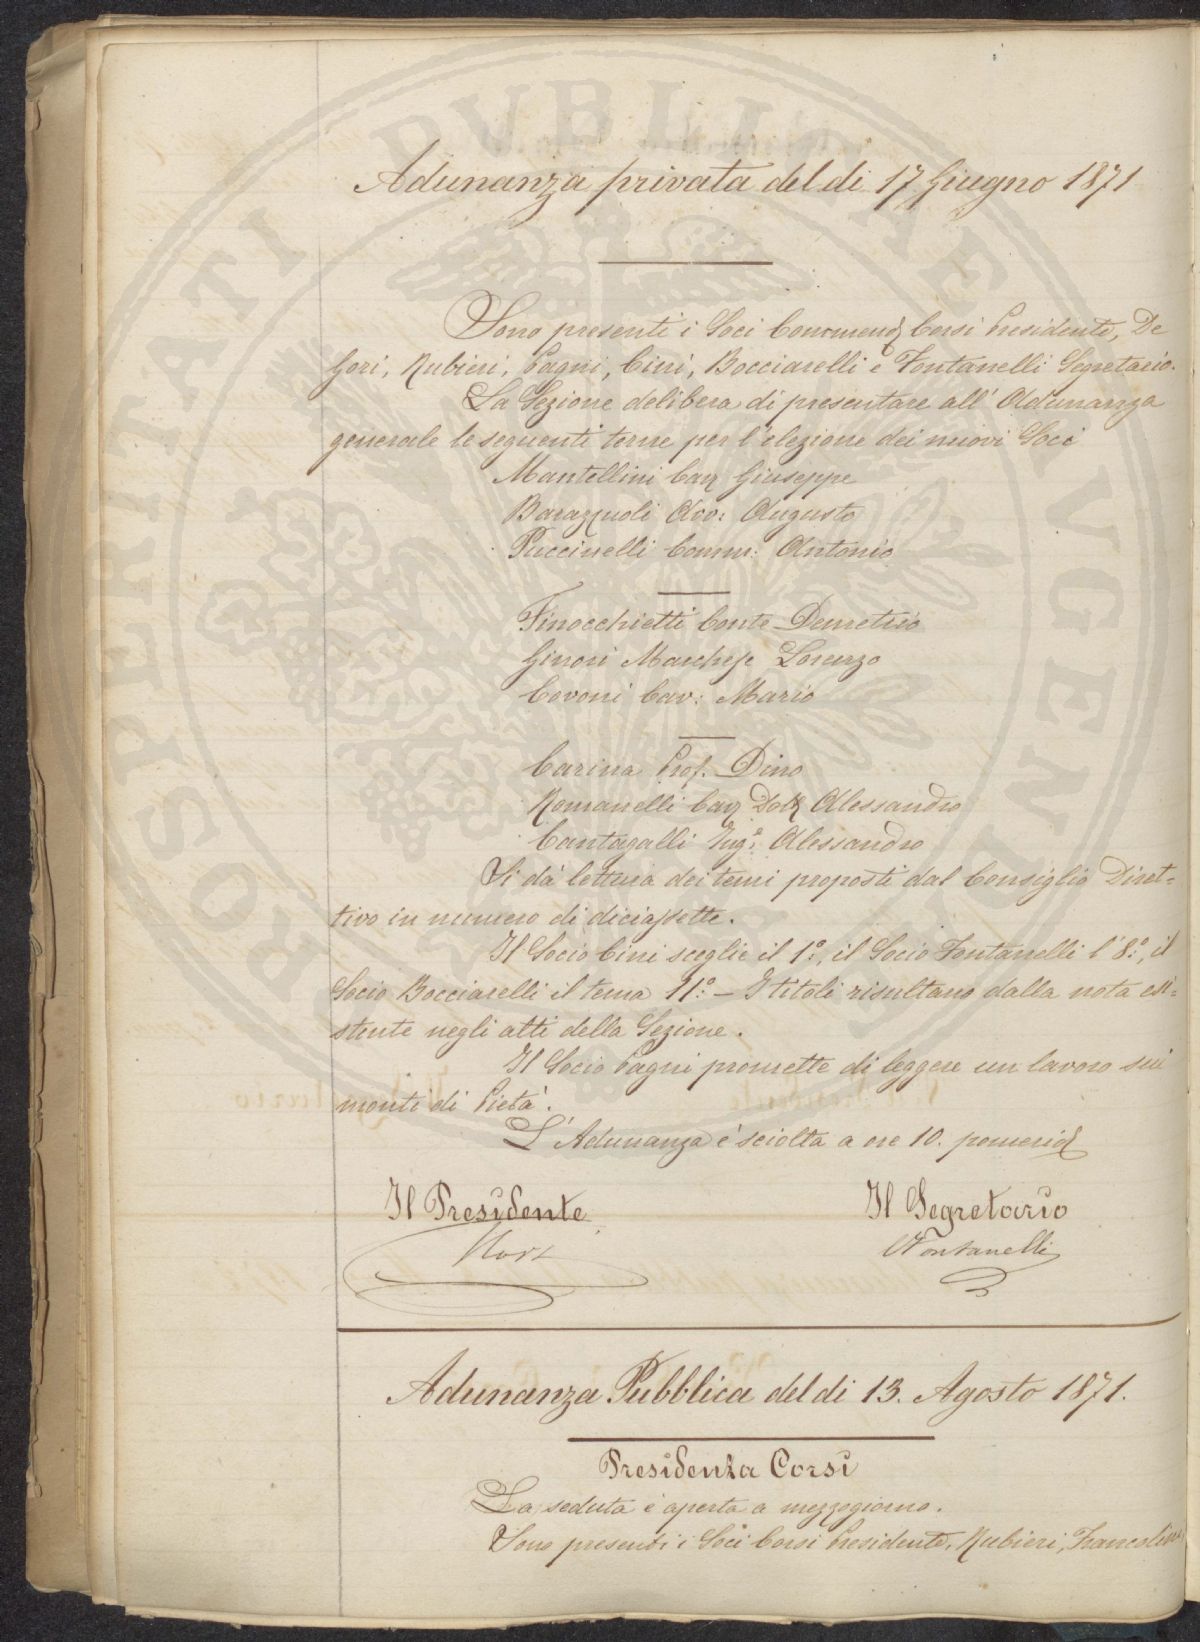 Adunanza privata del di 17 Giugno 1871
Sono presenti i Soci Commend Corsi Presidente, De
Gori, Rubieri, Pagni, Cini, Bocciarelli e Fontanelli Segretario.
La Sezione delibera di presentare all' Adunanza
generale le seguenti terne per l'elezione dei nuovi Soci
Mantellini Cav Giuseppe
Barazzuoli Avv: Augusto
Puccinelli Comm: Antonio
Finocchietti Conte Demetrio
Ginori Marchese Lorenzo
Covoni Cav: Mario
Carina Prof. Dino
Romanelli Cav Dott Alessandro
Cantagalli Ing.e Alessandro
Si dà lettura dei temi proposti dal Consiglio Diret=
tivo in numero di diciassette.
Il Socio Cini sceglie il 1.°, il Socio Fontanelli l'8.°, il
Socio Bocciarelli il tema 11.° — I titoli risultano dalla nota esi=
stente negli atti della Sezione.
Il Socio Pagni promette di leggere un lavoro sui
monti di Pietà.
L'Adunanza è sciolta a ore 10. pomerid
Il Presidente Il Segretario
Corsi Fontanelli
Adunanza Pubblica del di 13. Agosto 1871.
Presidenza Corsi
La seduta è aperta a mezzogiorno.
Sono presenti i Soci Corsi Presidente, Rubieri, Francolini
PROSPERITATI PVBLICAE AVGENDAE